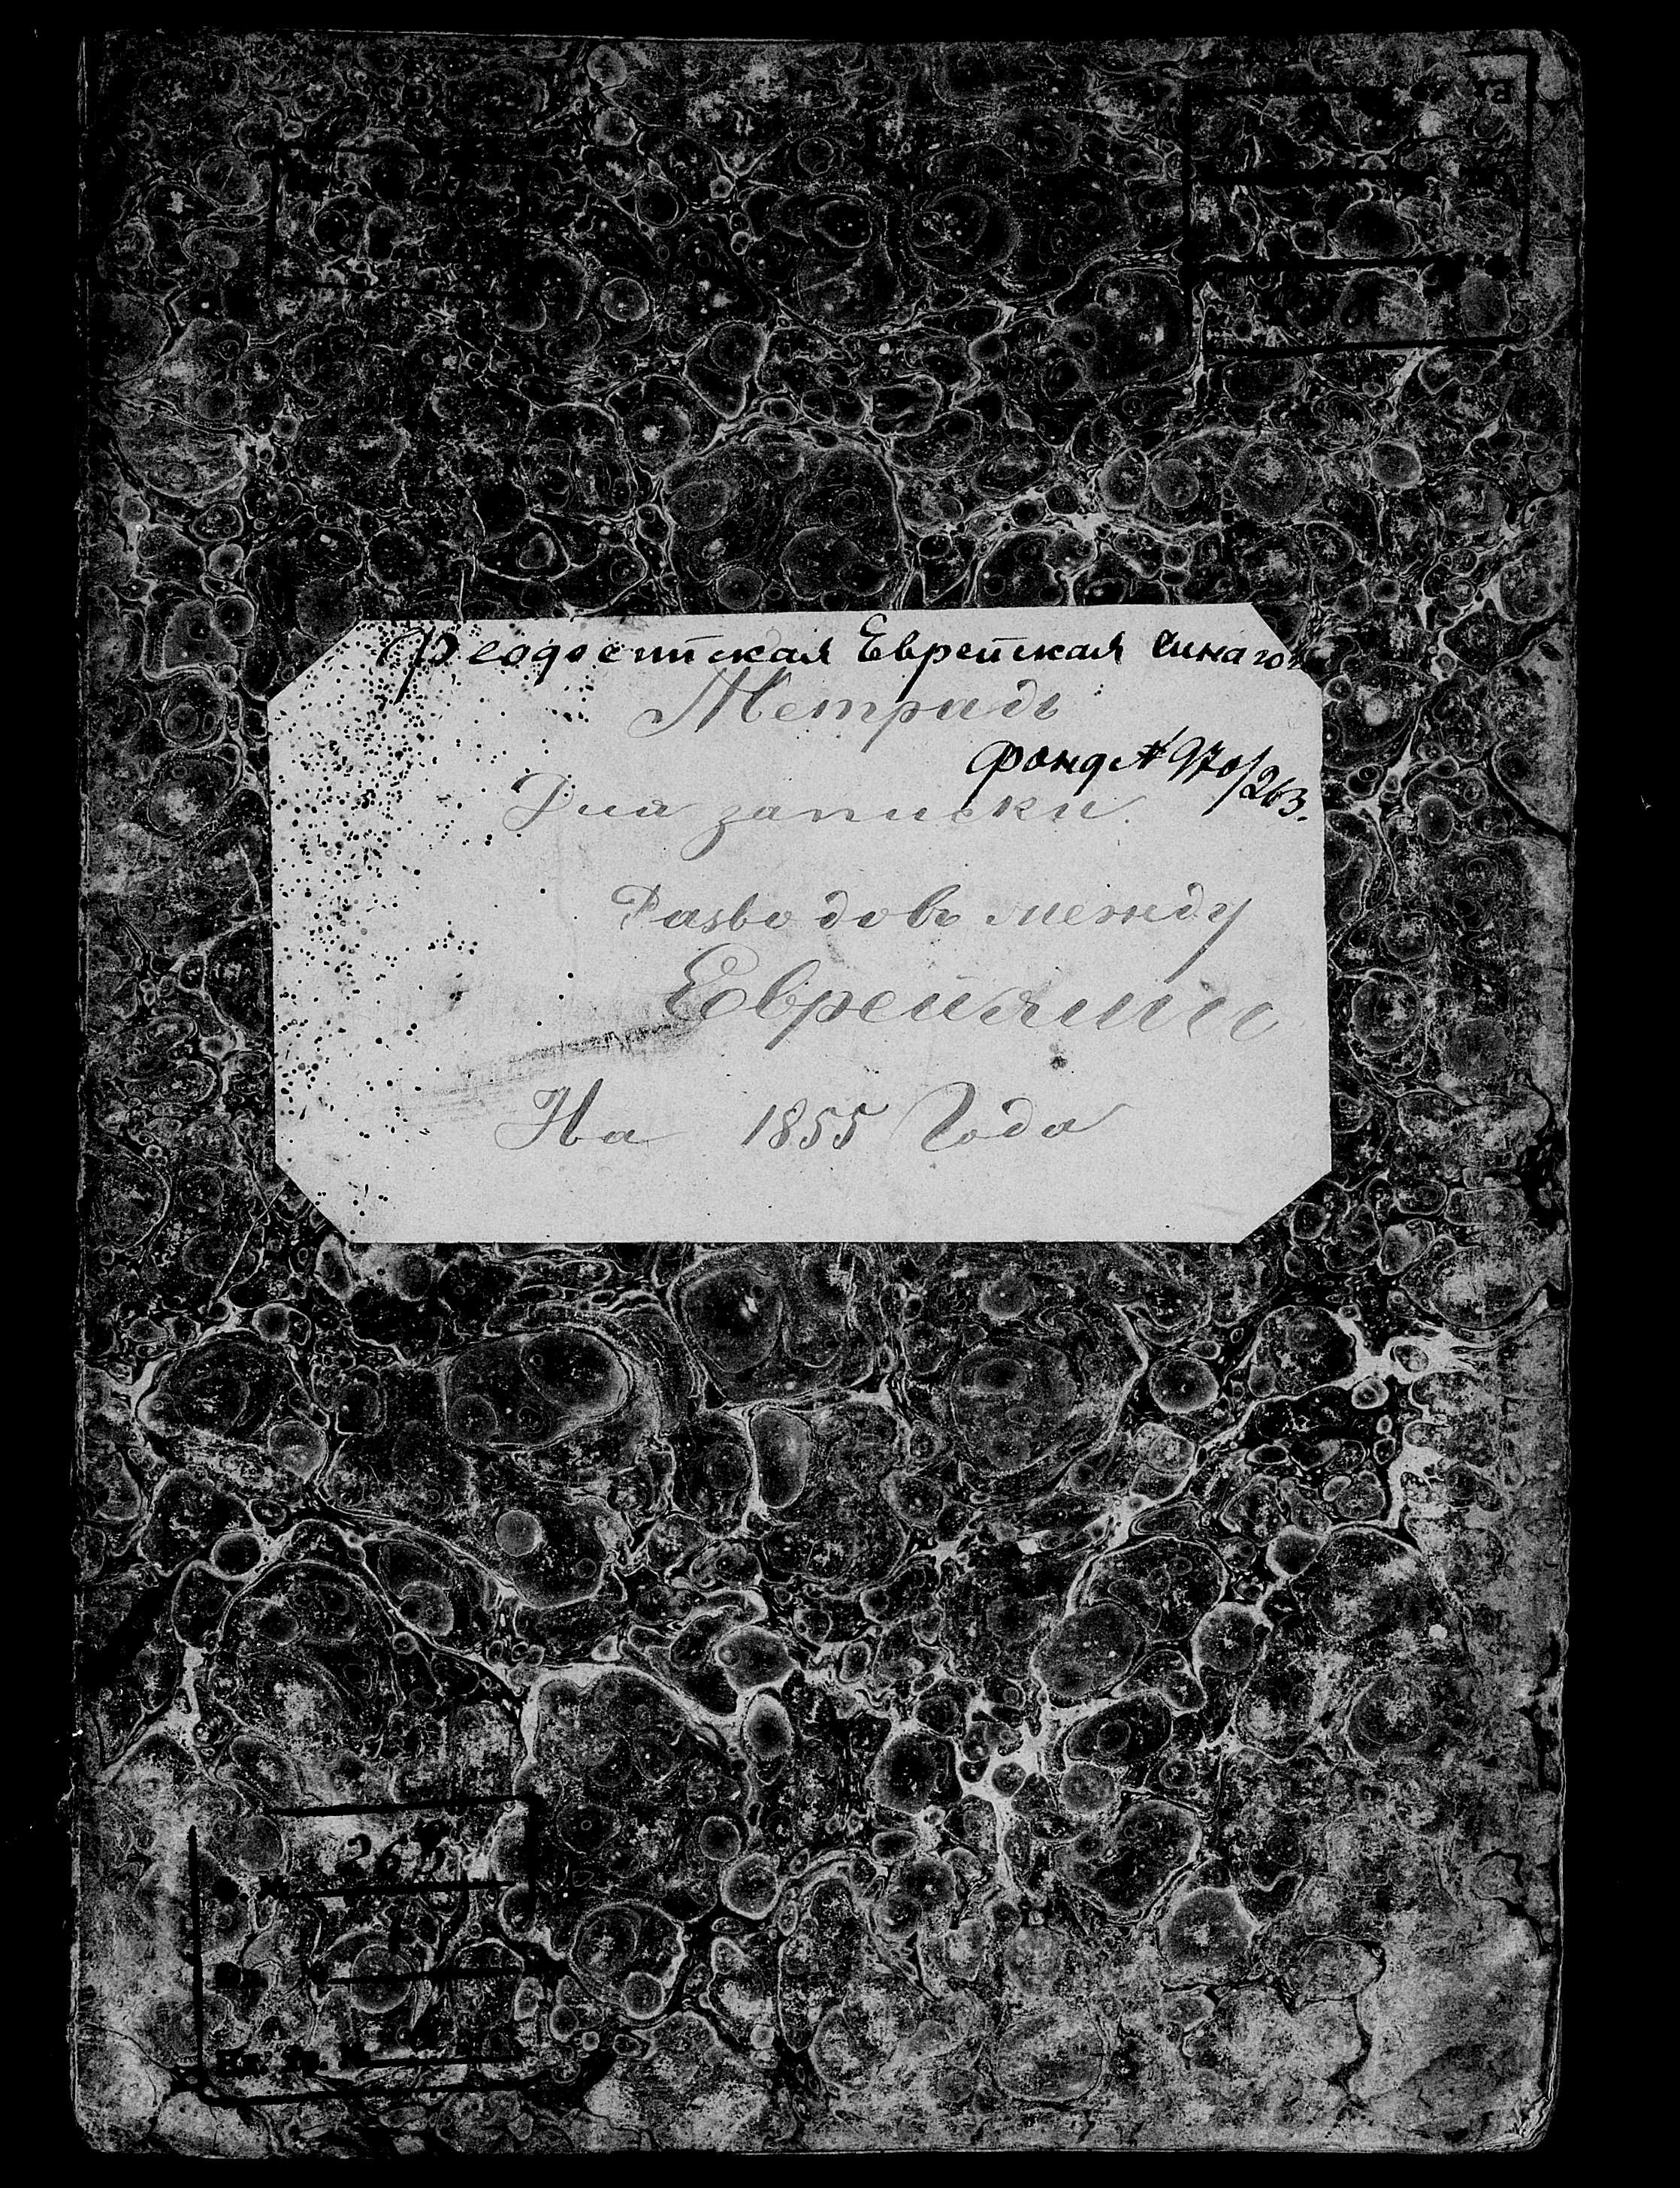 Феодосийская Еврейская Синагог
Тетрадь
фонд № 970/263.
Для записки
Разводовъ между
Евреями
На 1855 Года
263